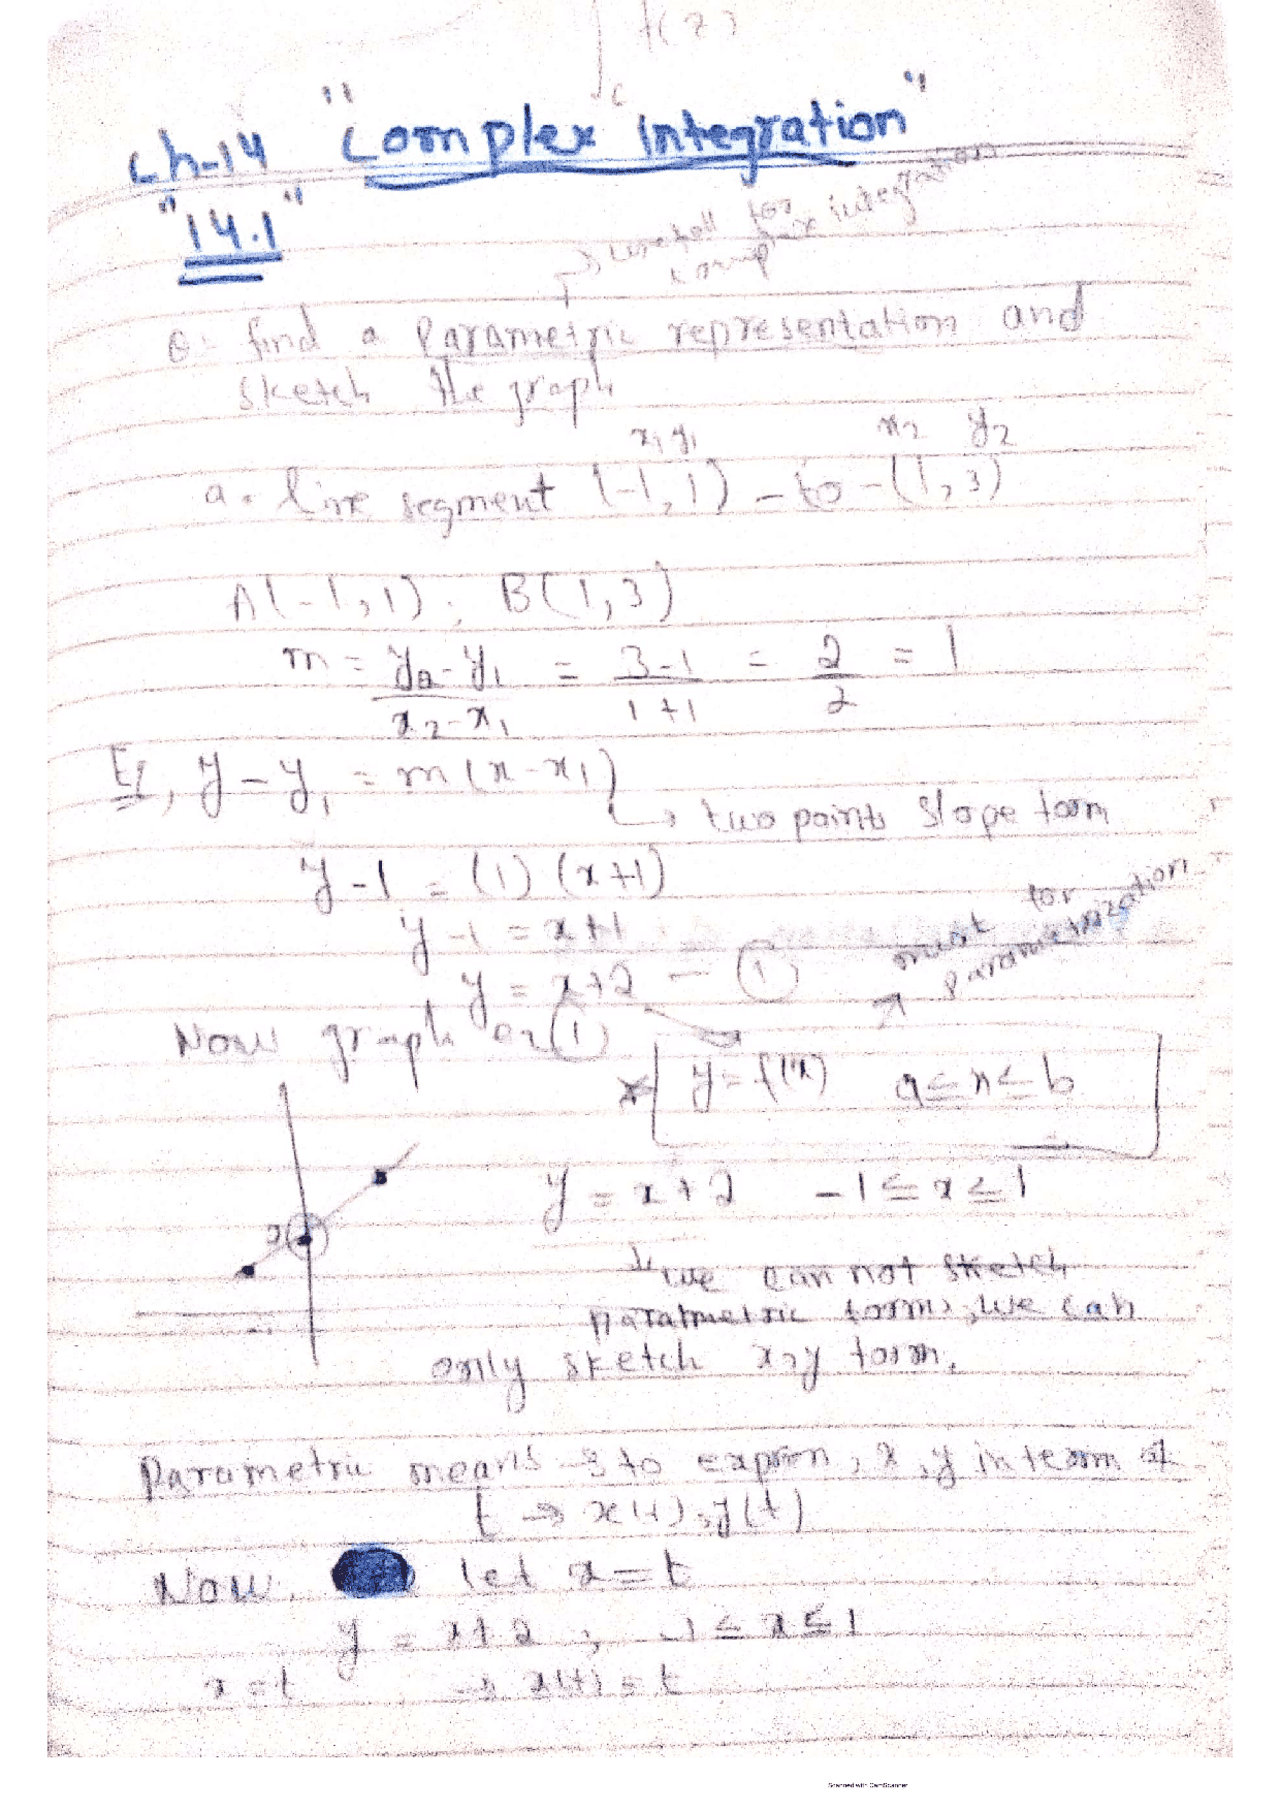 ∫c f(z)
Ch-14 "Complex Integration"
"14.1"
→ use tool for
complex integration
Q: find a Parametric representation and
sketch the graph
x1 y1 x2 y2
a. line segment (-1,1) - to - (1,3)
A(-1,1), B(1,3)
m = y2-y1/x2-x1 = 3-1/1+1 = 2/2 = 1
y-y1 = m(x-x1) } → two points slope form
y-1 = (1) (x+1)
y-1 = x+1
y = x+2 - (1)
must for
parametrization
Now graph (1)
* y = f(x) a≤x≤b
y = x+2 -1≤x≤1
we can not sketch
parametric form, we can
only sketch x,y form.
Parametric means → to express, x, y in term of
t → x(t), y(t)
Now. let x=t
y = x+2 ; -1≤x≤1
x=t → x(t)=t
Scanned with CamScanner